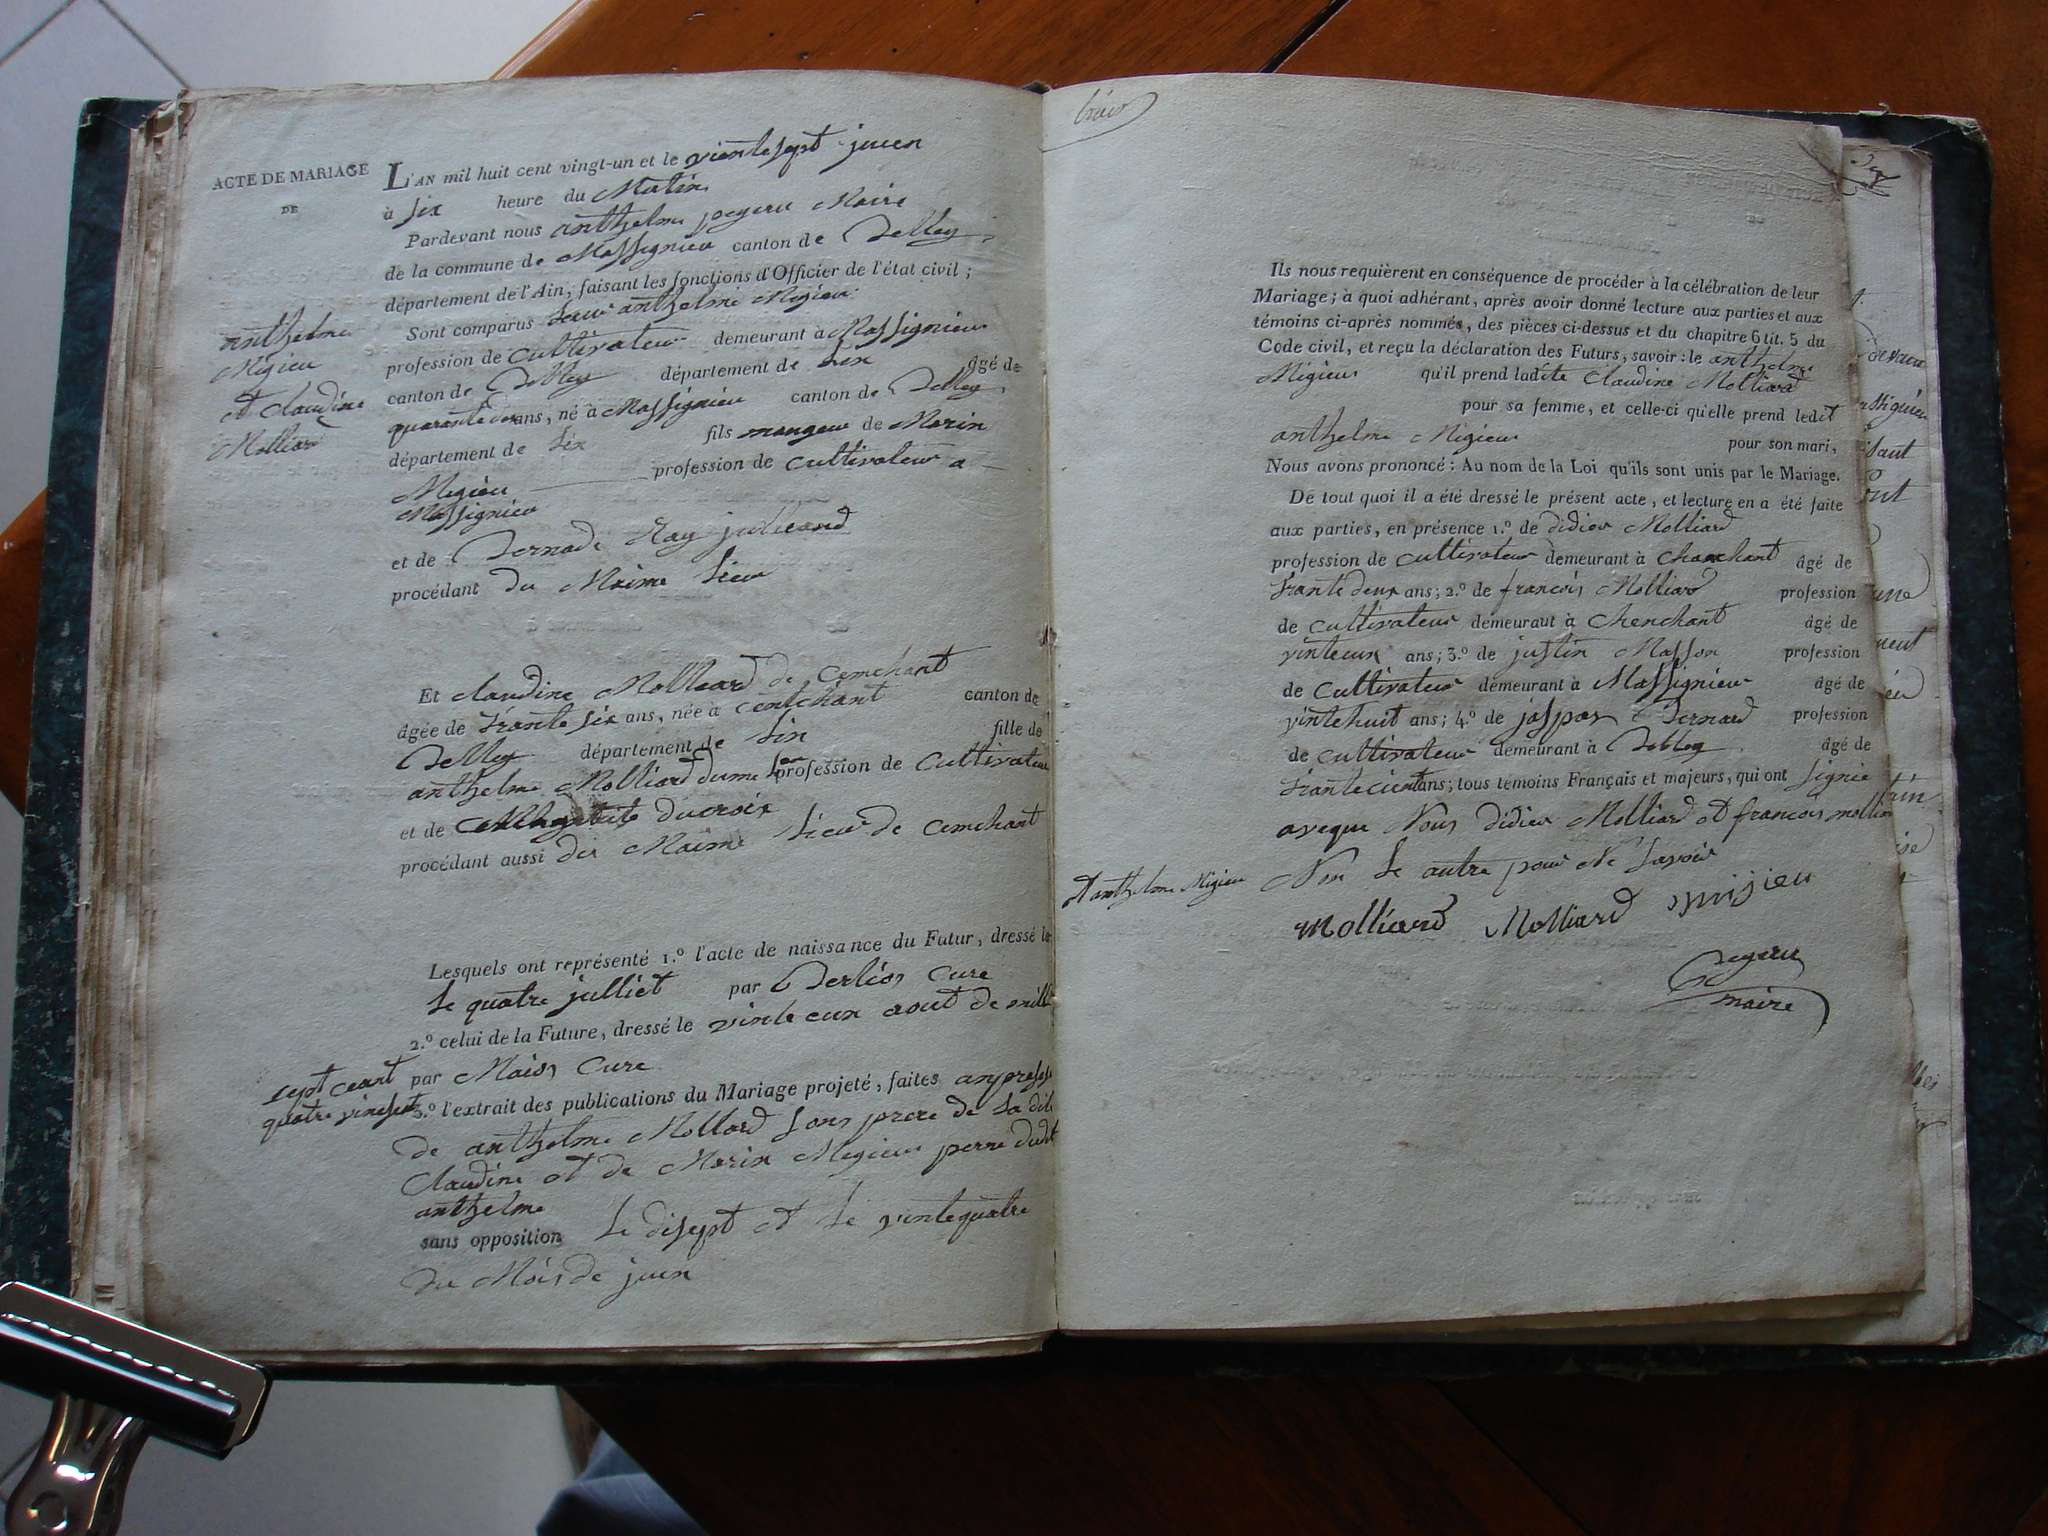 ACTE DE MARIAGE
DE
anthelme
Migieu
et claudine
Molliard
L'AN mil huit cent vingt-un et le vientesept juen
à six heure du Matin
Pardevant nous anthelme peyeru Maire
de la commune de Massignieu canton de Belley
département de l'Ain, faisant les fonctions d'Officier de l'état civil ;
Sont comparus anthelme Migieu
profession de Cultivateur demeurant à Massignieu
canton de Belley département de Lin âgé de
quarante ans, né à Massignieu canton de Belley
département de Lin fils mangeur de Marin
Megieu profession de Cultivateur a
Massignieu
et de Bernade Ray
procédant du Maime Lieu
Et claudine Molliard de Cemchant
âgée de trante six ans, née à centchant canton de
Belley département de Lin fille de
anthelme Molliard profession de Cultivateur
et de ducroix
procédant aussi du Maime Lieu de Cemchant
Lesquels ont représenté 1.º l'acte de naissance du Futur, dressé le
Le quatre julliet par Berlion Cure
2.º celui de la Future, dressé le vinte eun aout de mille
sept ceant
quatre vinesept
par Maion Cure
3.º l'extrait des publications du Mariage projeté, faites
de anthelme Mollard Sons prere de La dite
Claudine et de Marin Megieu perre dudit
anthelme
sans opposition Le disept et Le vintequatre
du Mois de juen
Ils nous requièrent en conséquence de procéder à la célébration de leur
Mariage ; à quoi adhérant, après avoir donné lecture aux parties et aux
témoins ci-après nommés, des pièces ci-dessus et du chapitre 6 tit. 5 du
Code civil, et reçu la déclaration des Futurs, savoir : le anthelme
Migieu qu'il prend ladite Claudine Molliard
pour sa femme, et celle-ci qu'elle prend ledit
anthelme Migieu pour son mari,
Nous avons prononcé : Au nom de la Loi qu'ils sont unis par le Mariage.
De tout quoi il a été dressé le présent acte, et lecture en a été faite
aux parties, en présence 1.º de didier Molliard
profession de Cultivateur demeurant à Chanchant âgé de
trante deux ans ; 2.º de francois Molliard profession
de Cultivateur demeurant à Chenchant âgé de
vinteeun ans ; 3.º de justin Masson profession
de Cultivateur demeurant à Massignieu âgé de
vintehuit ans ; 4.º de jaspar Bernard profession
de Cultivateur demeurant à âgé de
trante cient ans ; tous témoins Français et majeurs, qui ont Signie
aveque Nous didier Molliard et francois molliard
et anthelme Migieu
Non Le autre pour Ne Savoir
Molliard Molliard migieu
peyeru
maire